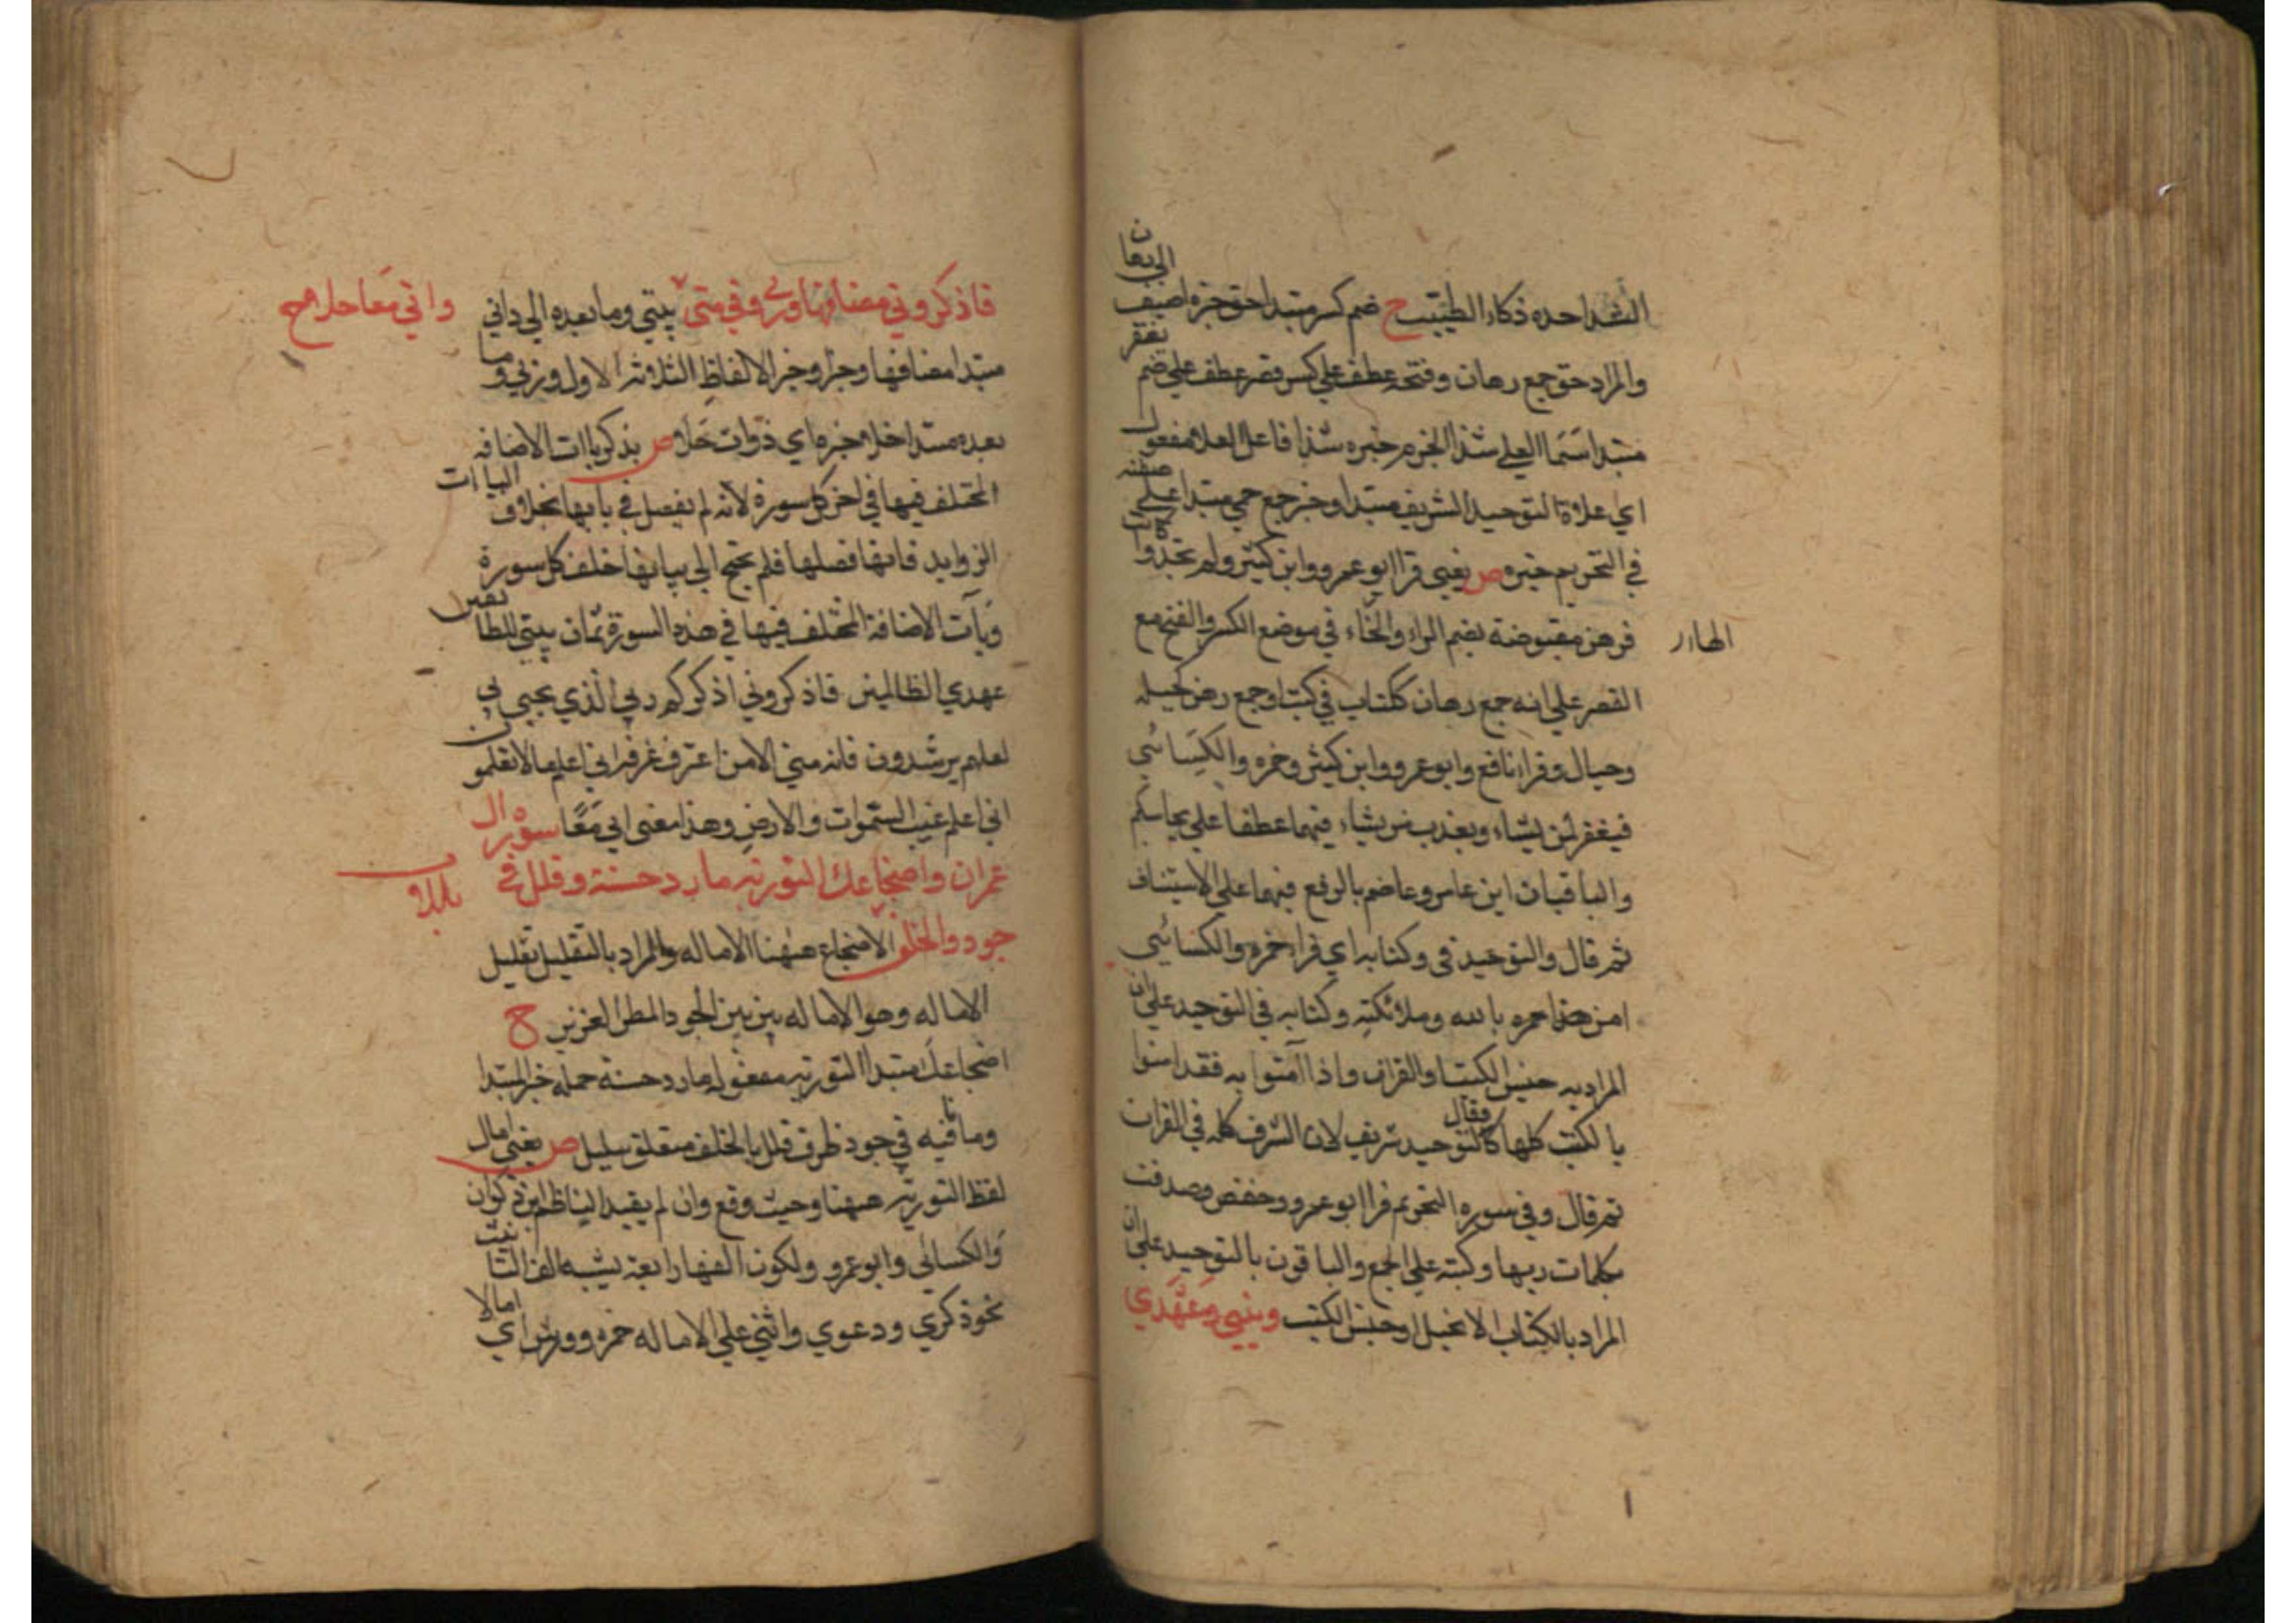 الى رهان
الشذا حده ذكاء الطيب ح ضم كسر مبتدا حق خبره اضيف
يغفر
والمراد حق جمع رهان وفتحه عطف علي كسر وقصر عطف علي ضم
مبتدا سما العلي شذا الجزم خبره شذا فاعل العلا مفعول
اي علاوة التوحيد الشريف مبتدا وخبر جمع حمي مبتدا علي
في التحريم خبره ص يعني قرا ابو عمرو وابن كثير ولم تجدوا كاتبا
فرهن مقبوضة بضم الراء والهاء في موضع الكسر والفتح مع
القصر علي انه جمع رهان ككتاب في كتب او جمع رهن
وحبال وقرا نافع وابو عمرو وابن كثير وحمزه والكسائي
فيغفر لمن يشاء ويعذب من يشاء فيهما عطفا علي يحاسبكم
والباقيان ابن عامر وعاصم بالرفع فيهما علي الاستيناف
ثم قال والتوحيد في وكتابه اي قرا حمزه والكسائي
امن بالله وملائكته وكتابه في التوحيد علي ان
المراد به جنس الكتب او القران واذا آمنوا به فقد امنوا
بالكتب كلها فقال كالتوحيد شريف لان الشرف كله في القران
ثم قال وفي سوره التحريم قرا ابو عمرو وحفص وصدقت
بكلمات ربها وكتبه علي الجمع والباقون بالتوحيد علي ان
المراد بالكتاب الانجيل او جنس الكتب وبيتي وعهدي
فاذكروني مضافها وربي وفي مني بيتي وما بعده الي داني واني معا حلا
مبتدا مضافها وجز وخبر الالفاظ الثلاثة الاول وربي وما
بعده مبتدا حلا خبره اي ذوات حلا ص يذكر ياات الاضافه
المختلف فيها في اخر كل سورة لانه لم يفصل في بابها بخلاف الياات
الزوايد فانها فصلها فلم يحتج الي بيانها خلف كل سورة
ويآت الاضافة المختلف فيها في هذه السورة ثمان بيتي للطائفين
عهدي الظالمين فاذكروني اذكركم ربي الذي يحيي بي
لعلهم يرشدون فانه مني الا من اغترف غرفة اني اعلم ما لا تعلمون
اني اعلم غيب السموات والارض وهذا معني اني معا سورة ال
عمران واضجاعك التورية ما رد حسنه وقلل في
جود وبالخلف بللا الاضجاع ههنا الاماله والمراد بالتقليل تقليل
الاماله وهو الاماله بين بين الجود المطر الغزير ح
اضجاعك مبتدا التورية مفعوله ما رد حسنه جمله خبر المبتدا
وما نافيه في جود ظرف قلل بالخلف متعلق ببلل ص يعني امال
لفظ التورية ههنا وحيث وقع وان لم يقيد الناظم ابن ذكوان
والكسائي وابو عمرو ولكون الفها رابعة يشبه الف التانيث
نحو ذكري ودعوي واثني علي الاماله حمزه وورش اي امالا